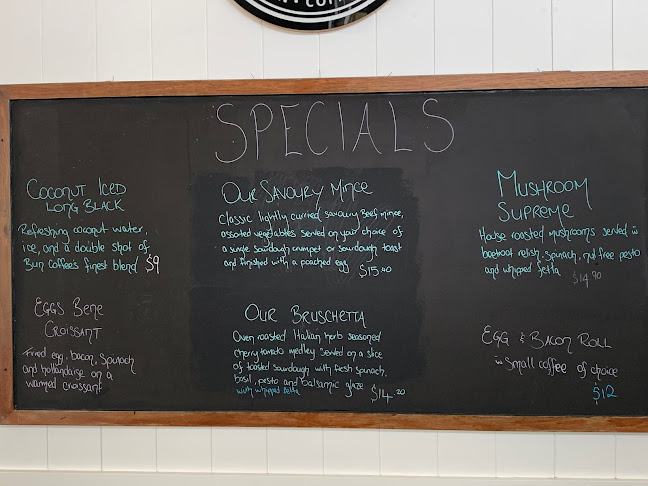 SPECIALS
COCONUT ICED
LONG BLACK
Refreshing coconut water,
ice, and a double shot of
Bun Coffee's finest blend $9
EGGS BENE
CROISSANT
Fried egg, bacon, spinach
and hollandaise on a
warmed croissant
OUR SAVOURY MINCE
Classic lightly curried savoury beef mince,
assorted vegetables served on your choice of
a single sourdough crumpet or sourdough toast
and finished with a poached egg
$15.40
OUR BRUSCHETTA
Oven roasted Italian herb seasoned
cherry tomato medley served on a slice
of toasted sourdough with fresh spinach,
basil, pesto and balsamic glaze
with whipped fetta $14.20
MUSHROOM
SUPREME
House roasted mushrooms served w
beetroot relish, spinach, nut free pesto
and whipped fetta $14.90
EGG & BACON ROLL
w Small coffee of choice
$12